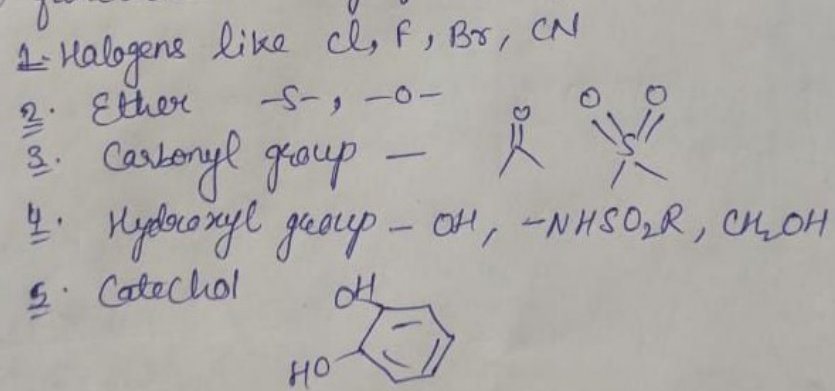 1. Halogens like Cl, F, Br, CN
2. Ether -S-, -O-
3. Carbonyl group - O O O S
4. Hydroxyl group - OH, -NHSO₂R, CH₂OH
5. Catechol OH
HO